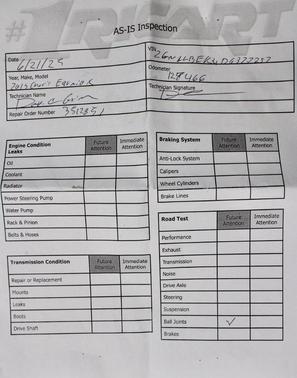 #1 RICART
AS-IS Inspection
Date
6/21/25
Year, Make, Model
2013 Chevy Equinox
Technician Name
Repair Order Number 3512851
VIN
Odometer
129,466
Technician Signature
Engine Condition
Leaks
Future Attention
Immediate Attention
Oil
Coolant
Radiator
Power Steering Pump
Water Pump
Rack & Pinion
Belts & Hoses
Transmission Condition
Future Attention
Immediate Attention
Repair or Replacement
Mounts
Leaks
Boots
Drive Shaft
Braking System
Future Attention
Immediate Attention
Anti-Lock System
Calipers
Wheel Cylinders
Brake Lines
Road Test
Future Attention
Immediate Attention
Performance
Exhaust
Transmission
Noise
Drive Axle
Steering
Suspension
Ball Joints ✓
Brakes